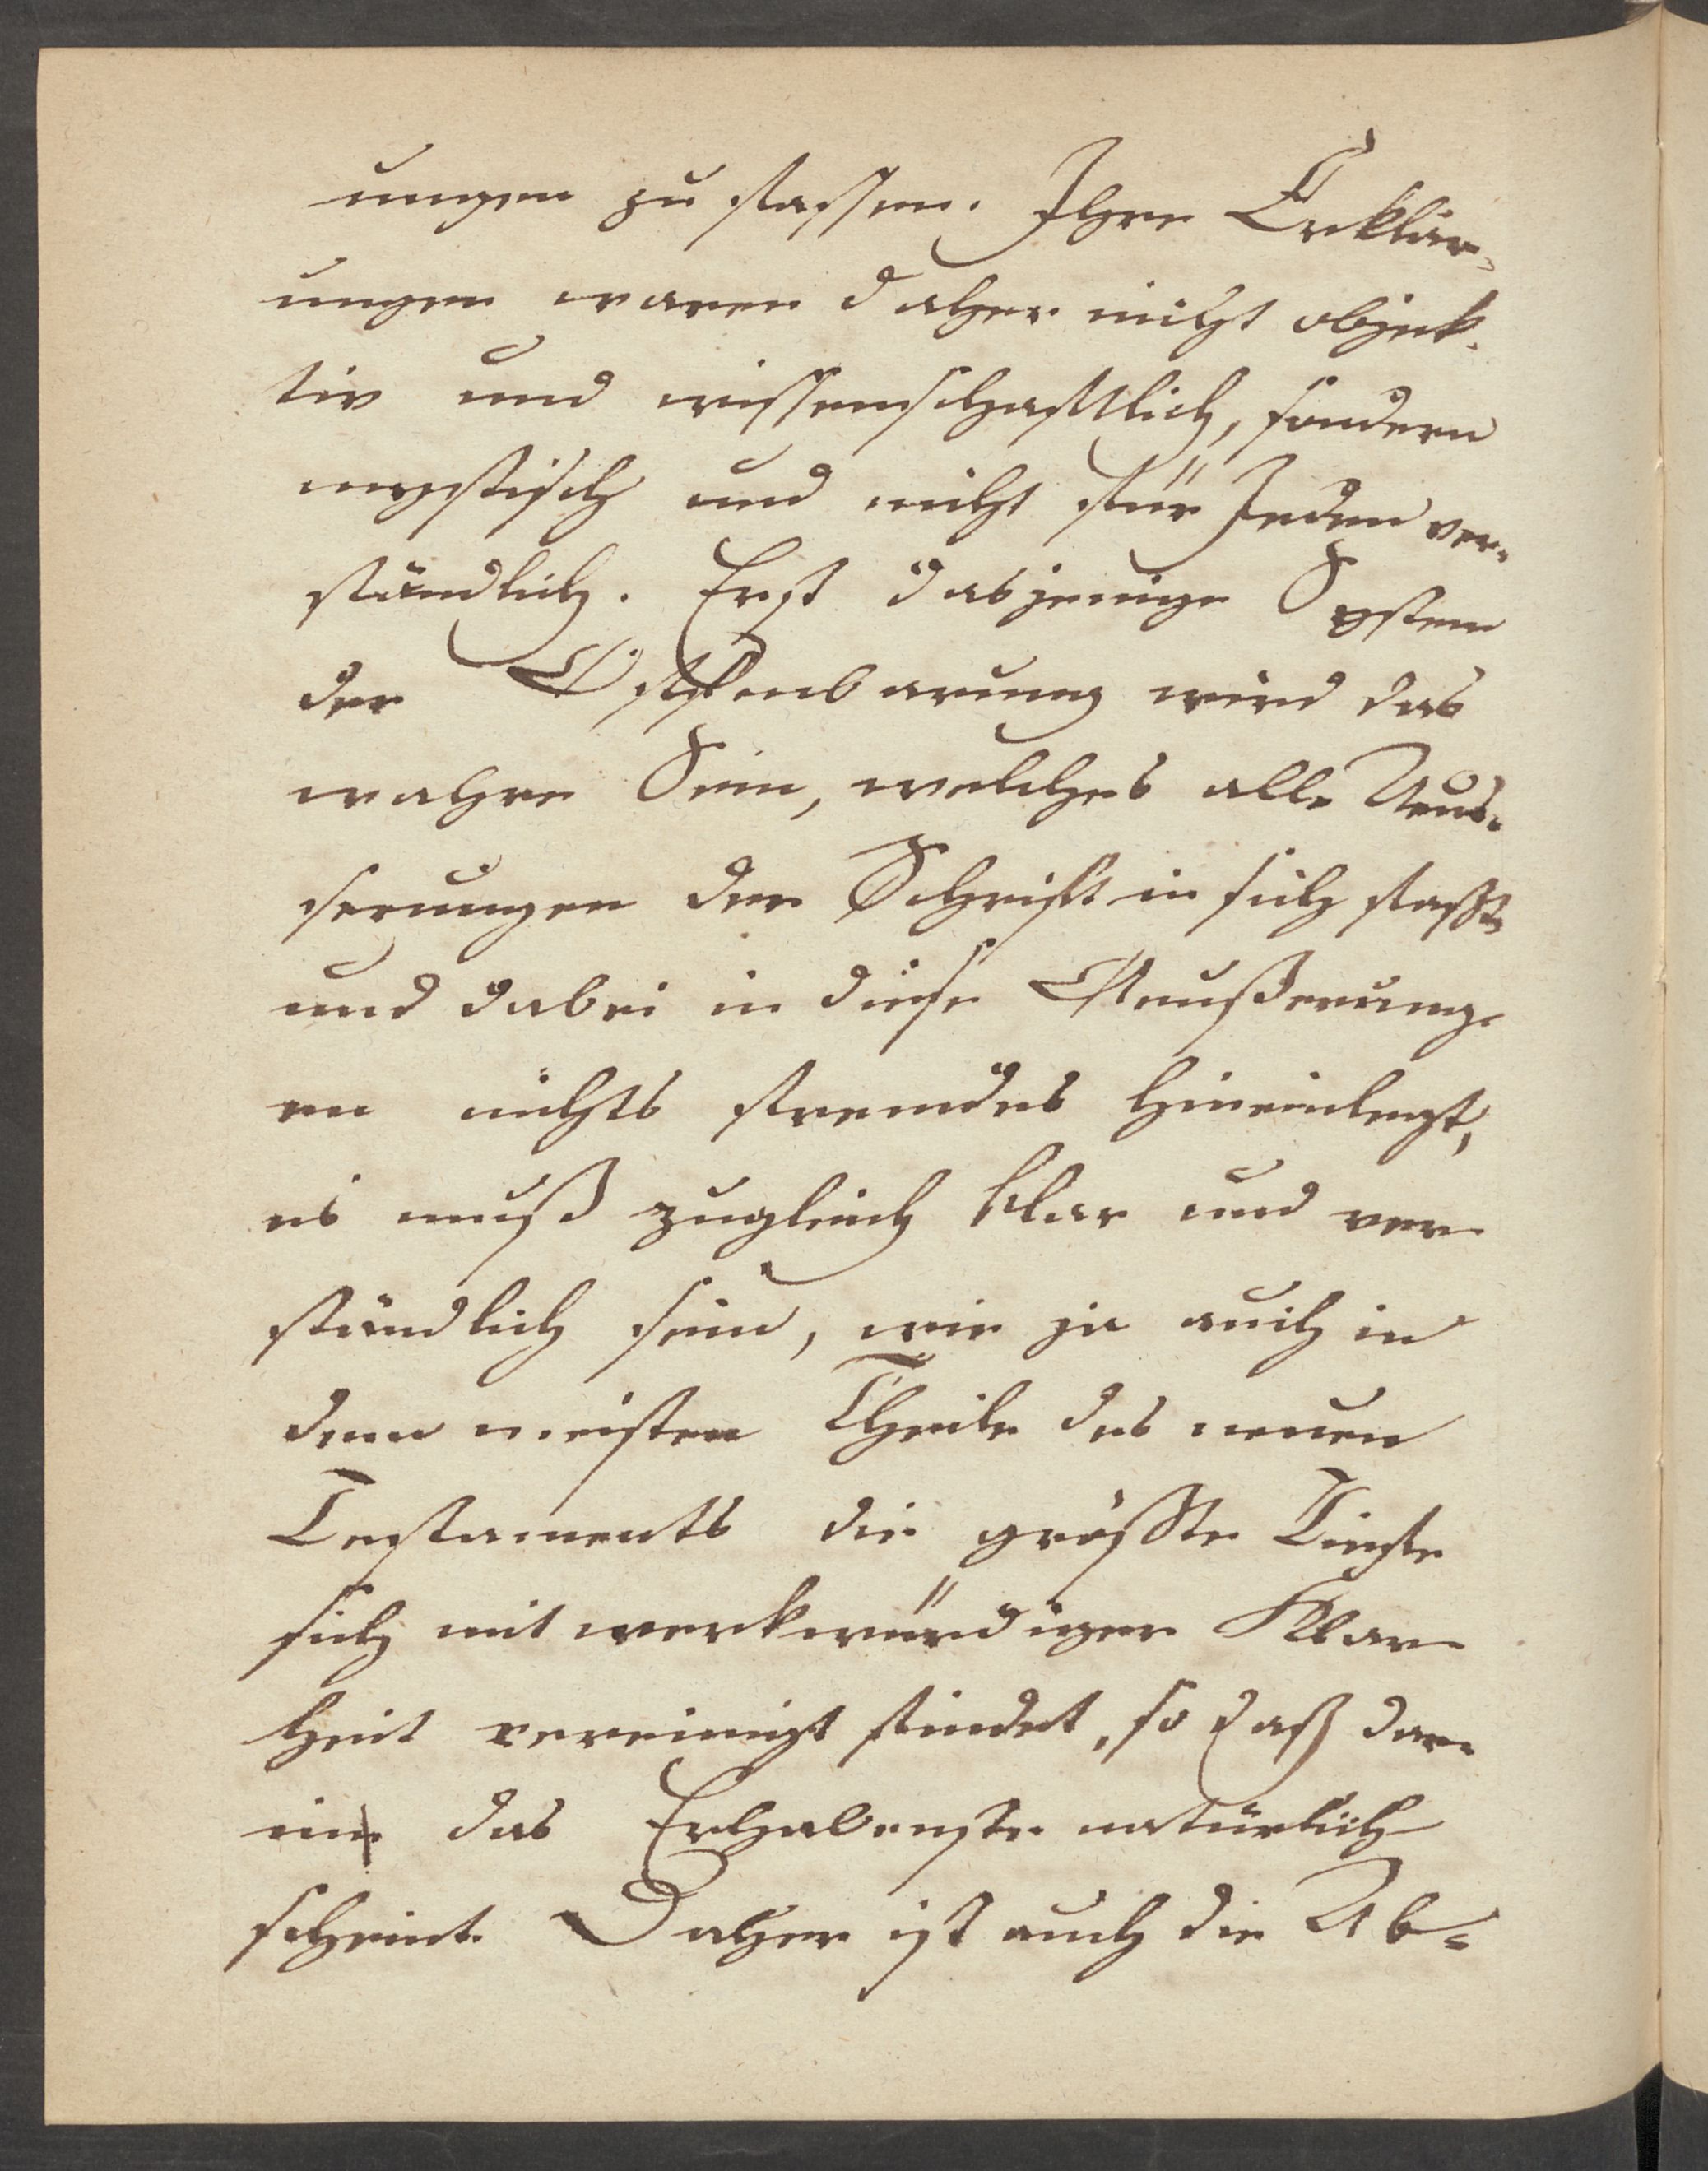 ungen zu fassen. Ihre Erklär-
ungen waren daher nicht objek-
tiv und wissenschaftlich, sondern
mystisch und nicht für Jeden ver-
ständlich. Erst dasjenige System
der Offenbarung wird das
wahre Sein, welches alle Aeus-
serungen der Schrift in sich faßt
und dabei in diese Aeußerung-
en nichts fremdes hineinlegt,
es muß zugleich klar und ver-
ständlich sein, wie ja auch in
dem meisten Theile des neuen
Testaments die größte Tiefe
sich mit merkwürdiger Klar-
heit vereinigt findet, so daß dar-
in das Erhabenste natürlich
scheint. Daher ist auch die Ab-